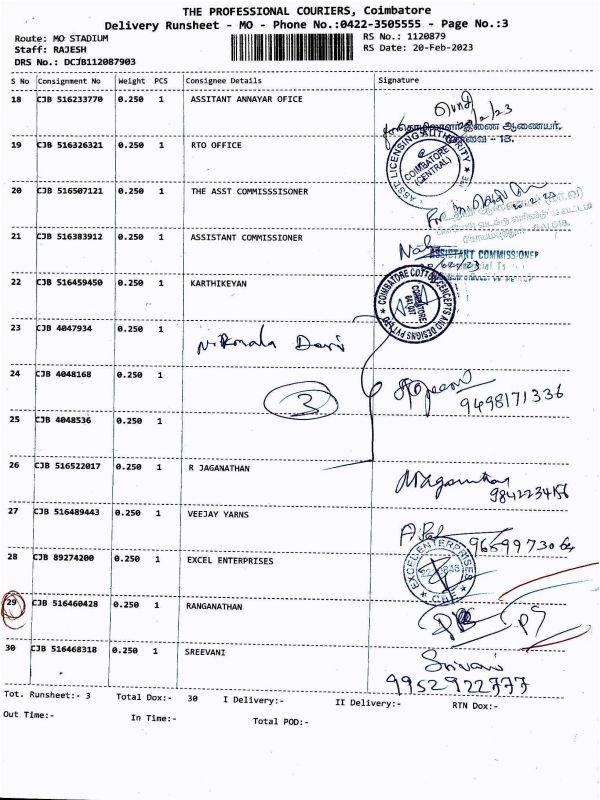 THE PROFESSIONAL COURIERS, Coimbatore
Delivery Runsheet - MO - Phone No.:0422-3505555 - Page No.:3
Route: MO STADIUM
RS No.: 1120879
Staff: RAJESH
RS Date: 20-Feb-2023
DRS No.: DCJB112087903
S No Consignment No Weight PCS Consignee Details Signature
18 CJB 516233770 0.250 1 ASSITANT ANNAYAR OFICE
19 CJB 516326321 0.250 1 RTO OFFICE
ASST LICENSING AUTHORITY
COIMBATORE
(CENTRAL)
20 CJB 516507121 0.250 1 THE ASST COMMISSSISONER
21 CJB 516383912 0.250 1 ASSISTANT COMMISSIONER
ASSISTANT COMMISSIONER
22 CJB 516459450 0.250 1 KARTHIKEYAN
COIMBATORE COTTON CONCEPTS AND DESIGNS PVT LTD
COIMBATORE
23 CJB 4047934 0.250 1
Nirmala Devi
24 CJB 4048168 0.250 1
3
9498171336
25 CJB 4048536 0.250 1
26 CJB 516522017 0.250 1 R JAGANATHAN
27 CJB 516489443 0.250 1 VEEJAY YARNS
28 CJB 89274200 0.250 1 EXCEL ENTERPRISES
EXCEL ENTERPRISES
29 CJB 516460428 0.250 1 RANGANATHAN
30 CJB 516468318 0.250 1 SREEVANI
Srivani
9952922777
Tot. Runsheet:- 3 Total Dox:- 30 I Delivery:- II Delivery:- RTN Dox:-
Out Time:- In Time:- Total POD:-